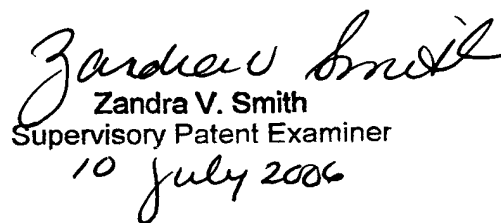 Zandra V Smith
Zandra V. Smith
Supervisory Patent Examiner
10 July 2006